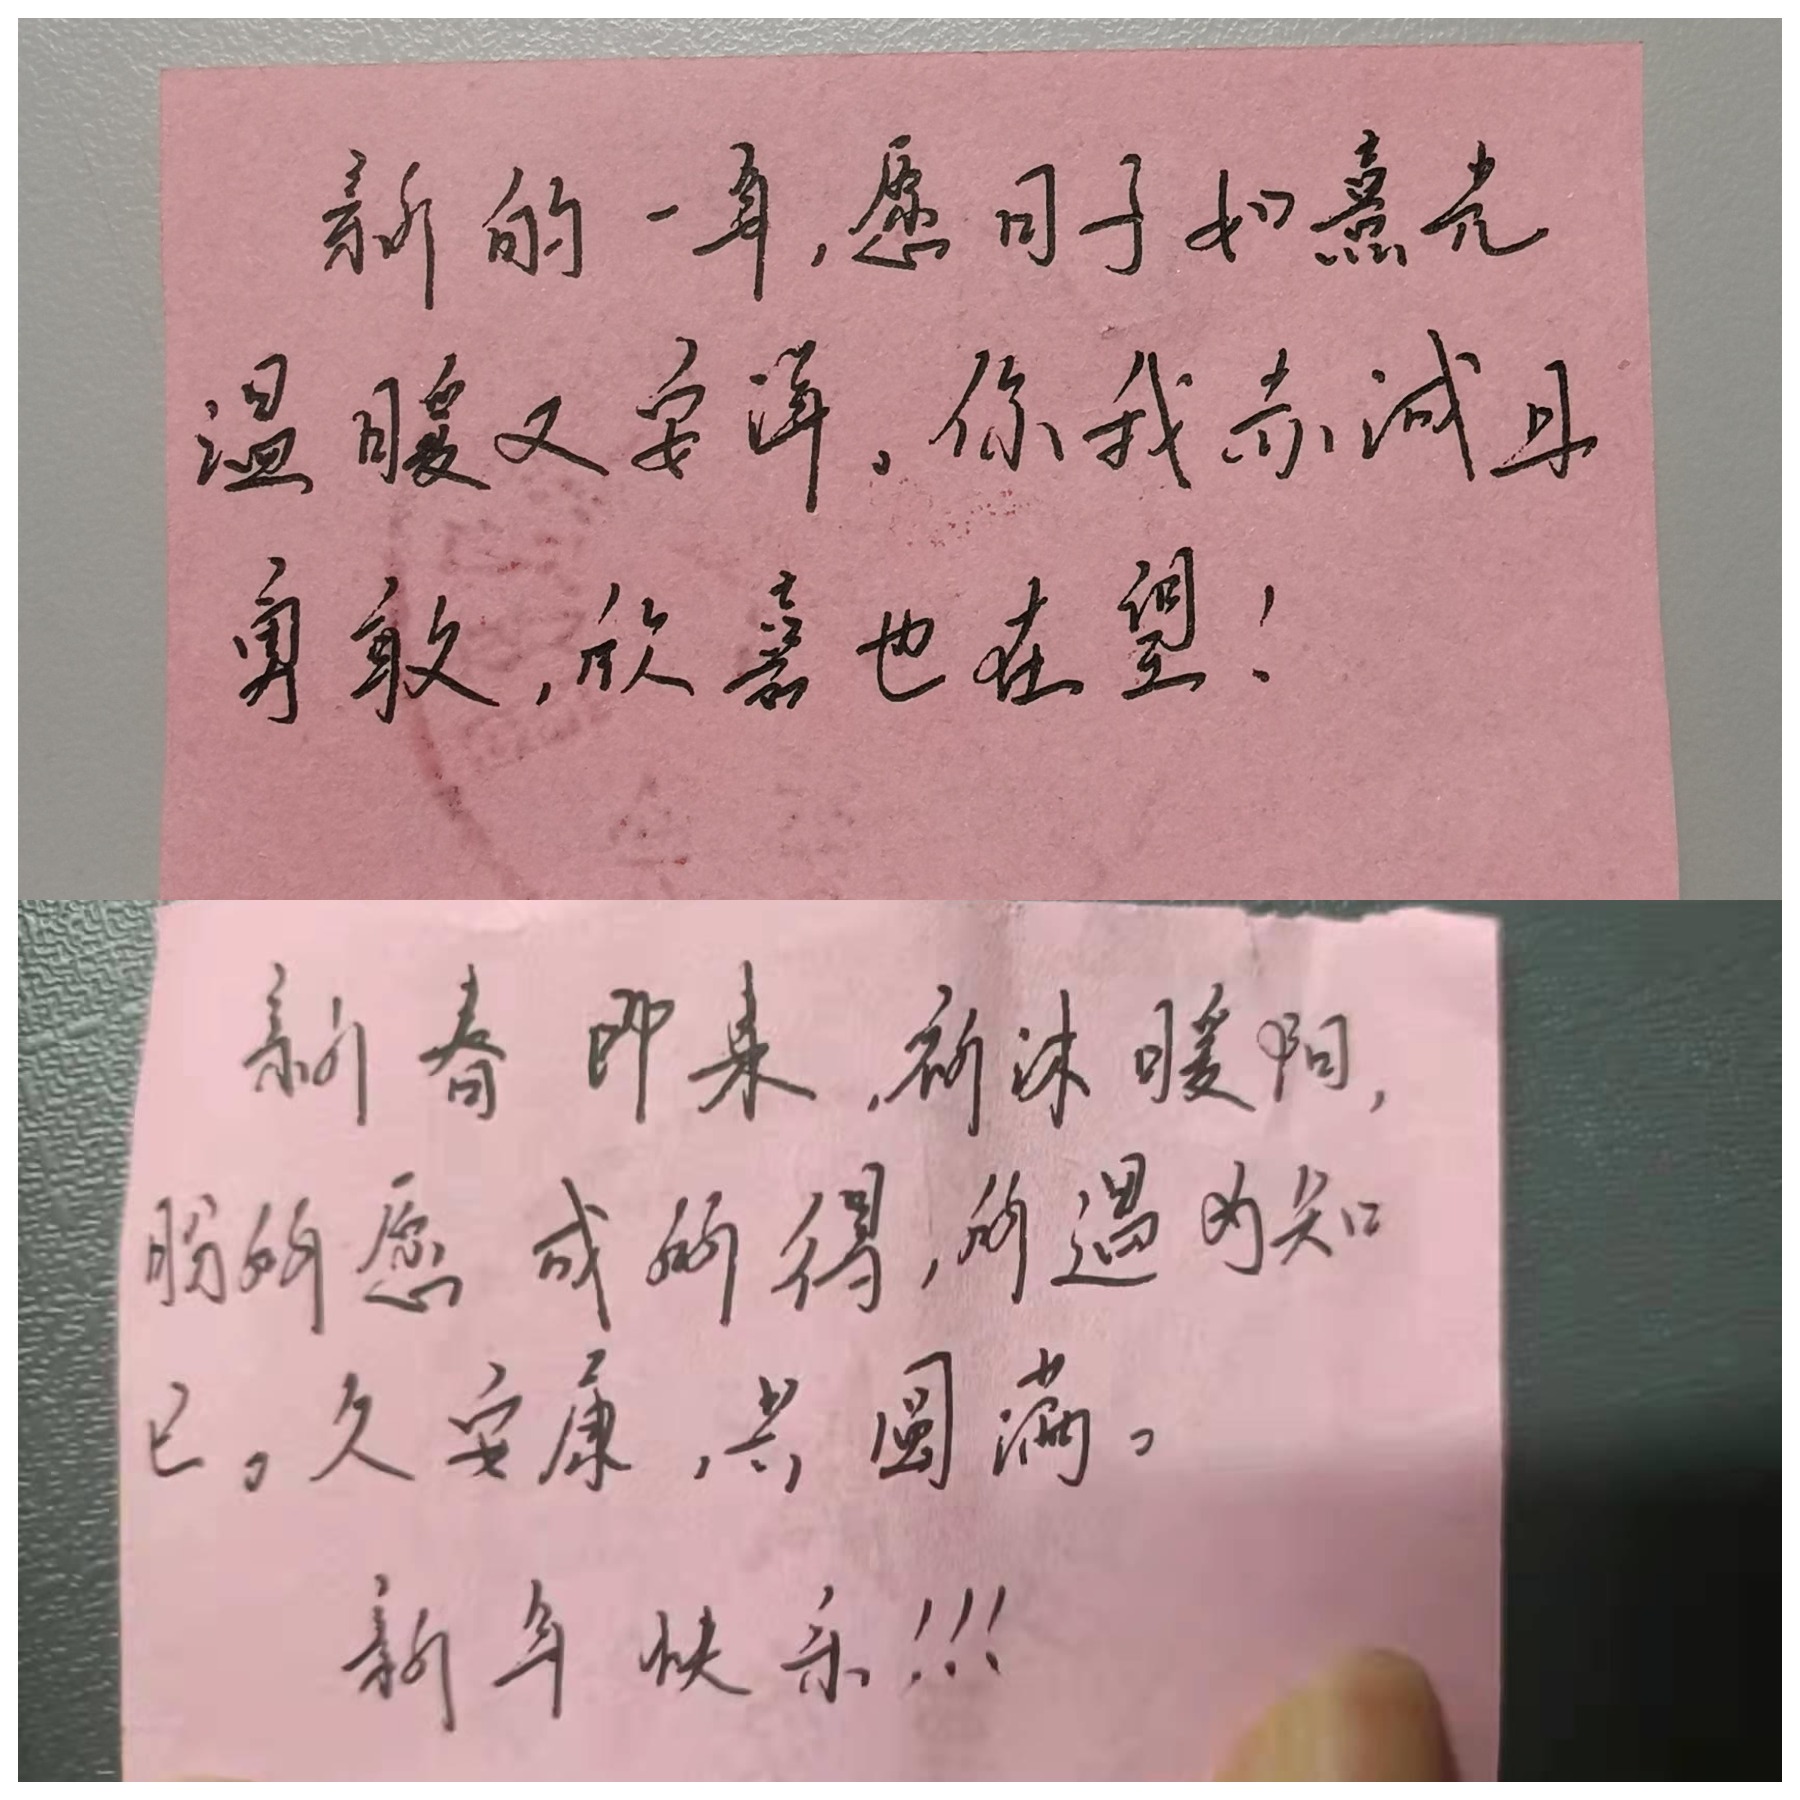 新的一年,愿日子如熹光
温暖又安洋。你我赤诚且
勇敢,欣喜也在望!
新春即来,祈沐暖阳,
盼所愿成所得,所遇为知
已。久安康,共圆满。
新年快乐!!!